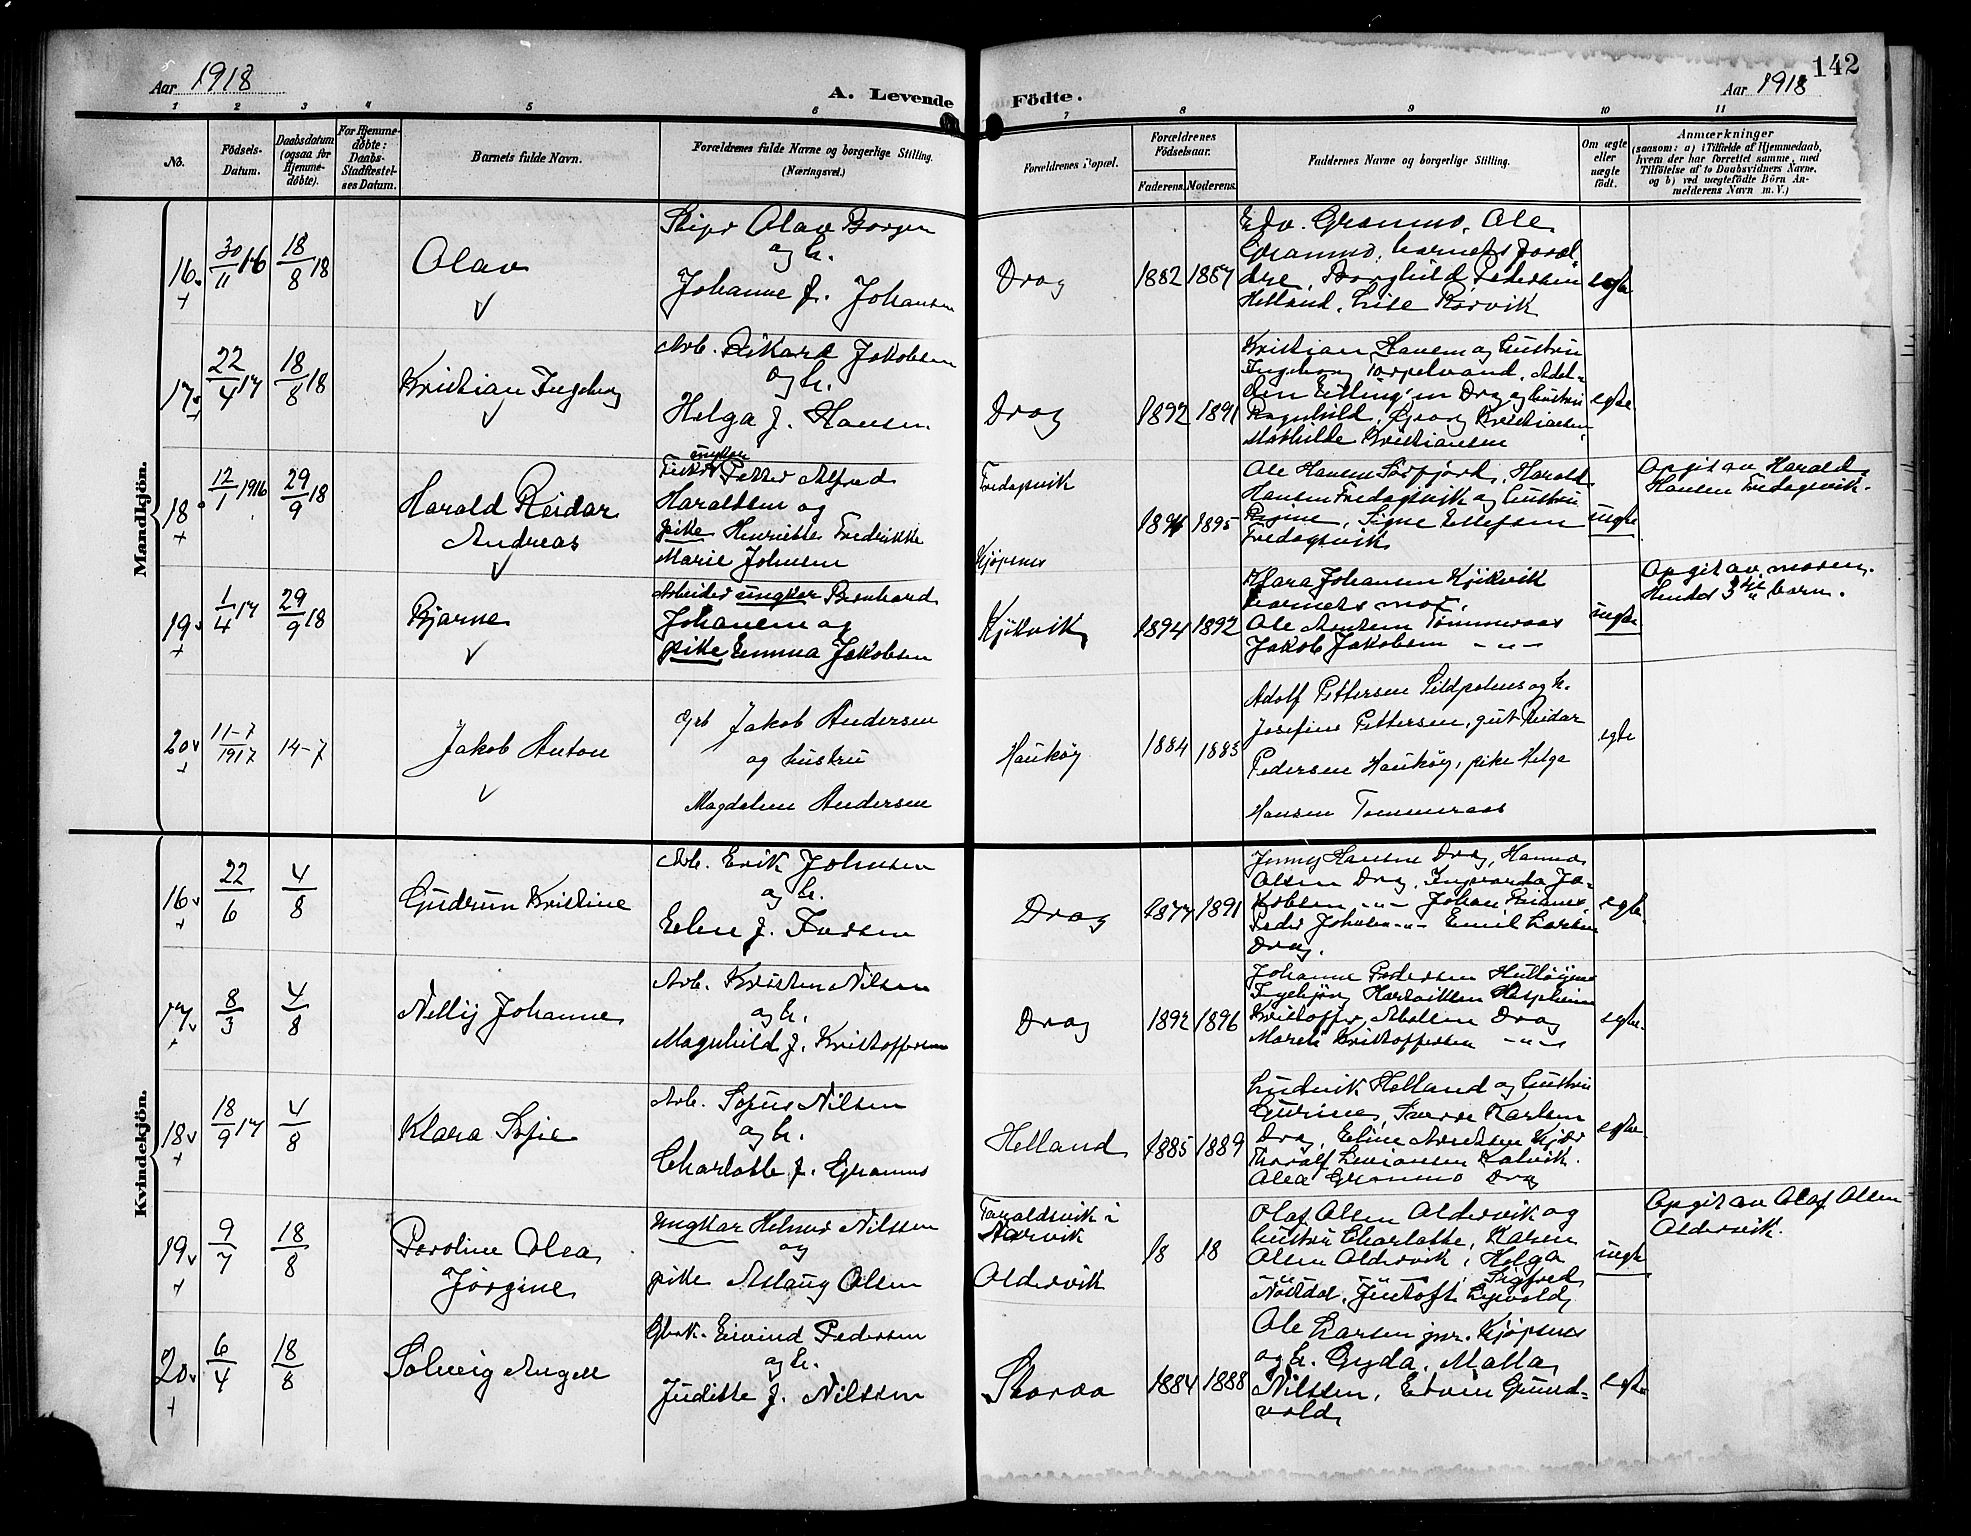 142
Aar 1918
A. Levende Födte.
Aar 1918
1 2 3 4 5 6 7 8 9 10 11
No.
Födsels-
Datum.
Daabsdatum
(ogsaa for
Hjemme-
döbte).
For Hjemme-
döbte:
Daabs-
Stadfæstel-
ses Datum.
Barnets fulde Navn.
Forældrenes fulde Navne og borgerlige Stilling.
(Næringsvei.)
Forældrenes Bopæl.
Forældrenes
Födselsaar.
Faderens. Moderens.
Faddernes Navne og borgerlige Stilling.
Om ægte
eller
uægte
födt.
Anmærkninger
(saasom: a) i Tilfælde af Hjemmedaab,
hvem der har forrettet samme, med
Tilföielse af to Daabsvidners Navne,
og b) ved uægtefödte Börn An-
melderens Navn m. V.)
Mandkjön.
16
30/11 16
18/8 18
Olav
Olav
og h.
Johanne f. Johansen
Drag
1882 1887
Edv. Granmo, Ole
Granmo, barnets foræl-
dre, Borghild Pedersen
Helland, Lise Rørvik
egte
17
22/4 17
18/8 18
Kristian Ingeborg
Arb. Rikard Jakobsen
og h.
Helga f. Hansen
Drag
1892 1891
Kristian Hansen og hustru
Ingeborg
Drag og hustru
Ragnhild, Kristiansen
Mathilde Kristiansen
egte
18
12/1 1916
29/9 18
Harald Reidar
Andreas
ungkar
Fisker Petter Alfred
Haraldsen og
pike Henriette Fredrikke
Marie Johnsen
Fredagsvik
Kjøpsnes
1895
Ole Hansen Sørfjord, Harald
Hansen Fredagsvik og hustru
Regine, Signe Ellefsen
Fredagsvik
uegte
Opgit av Harald
Hansen Fredagsvik.
19
1/4 17
29/9 18
Bjarne
Arbeider ungkar Bernhard
Johansen og
pike Emma Jakobsen
Kjikvik
1894 1892
Klara Johansen Kjikvik
barnets mor,
Ole Tømmeraas
Jakob Jakobsen - " -
uegte
Opgit av moren.
Hendes 3die barn.
20
11-7
1917
14-7
Jakob Anton
Jakob Andersen
og hustru
Magdalena Andersen
Haukøy
1884 1883
Adolf Pettersen Sildpolnes og h.
Josefine Pettersen, gut Reidar
Pedersen Haukøy, pike Helga
Hansen Tømmeraas
egte
Kvindekjön.
16
22/6
4/8
Gudrun Kristine
Arb. Erik Johnsen
og h.
Elen f.
Drag
1877 1891
Jenny Hansen Drag, Hanna
Olsen Drag, Ingvarda Ja-
kobsen - " - Johan
Peder Johnsen - " - Emil Larsen
Drag.
egte
17
8/3
4/8
Nelly Johanne
Arb. Kristen Nilsen
og h.
Magnhild f. Kristoffersen
Drag
1892 1896
Johanne Pedersen
Ingebjørg Hartviksen
Kristoffer Drag
Kristoffersen - " -
egte
18
18/9 17
4/8
Klara Sofie
Arb. Sofus Nilsen
og h.
Charlotte f. Granmo
Helland
1885 1889
Ludvik Helland og hustru
Gurine, Sverre Karlsen
Drag, Eline Kjær
Thoralf Kalvik.
Alea Granmo Drag
egte
19
9/7
18/8
Peroline Olea
Jørgine
Ungkar Helmer Nilssen
og
pike Aslaug Olsen
Taraldsvik i
Narvik
Aldervik
18 18
Olaf Olsen Aldervik og
hustru Charlotte, Karen
Olsen Aldervik, Helga
Sigfred
uegte
Opgit av Olaf Olsen
Aldervik.
20
6/4
18/8
Solveig Angell
Gbrk. Eivind Pedersen
og h.
Juditte f. Nilssen
Storaa
1884 1888
Ole Larsen jnr. Kjøpsnes
og h. Gyda, Malla
Nilssen, Edvin Grund-
vold
egte